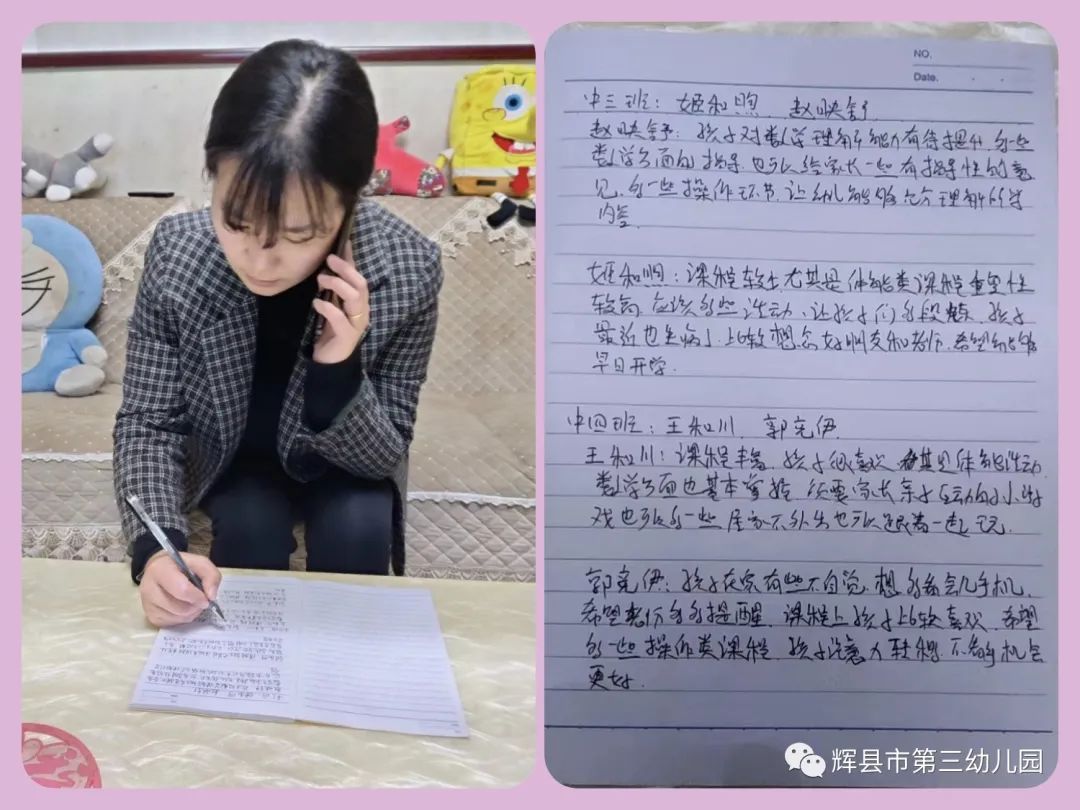 NO.
Date.
中三班：姬和煦 赵映舒
赵映舒：孩子对数学理解能力有待提升，多些
数学方面的指导，也可以给家长一些有指导性的意
见，多一些操作环节，让幼儿能够充分理解所学
内容。
姬和煦：课程较生尤其是体能类课程重复性
较高，应该多些活动，让孩子们多段炼，孩子
最近也生病了，比较想念好朋友和老师，希望能够
早日开学。
中四班：王和川、郭宪伊
王和川：课程丰富，孩子很喜欢，尤其是体能活动
数学方面也基本掌握，须要家长亲子互动的小游
戏也可以多一些，居家不外出也可以跟着一起玩。
郭宪伊：孩子在家有些不自觉，想多看会儿手机，
希望老师多多提醒，课程上孩子比较喜欢，希望
多一些操作类课程，孩子注意力转移，不看手机会
更好。
辉县市第三幼儿园